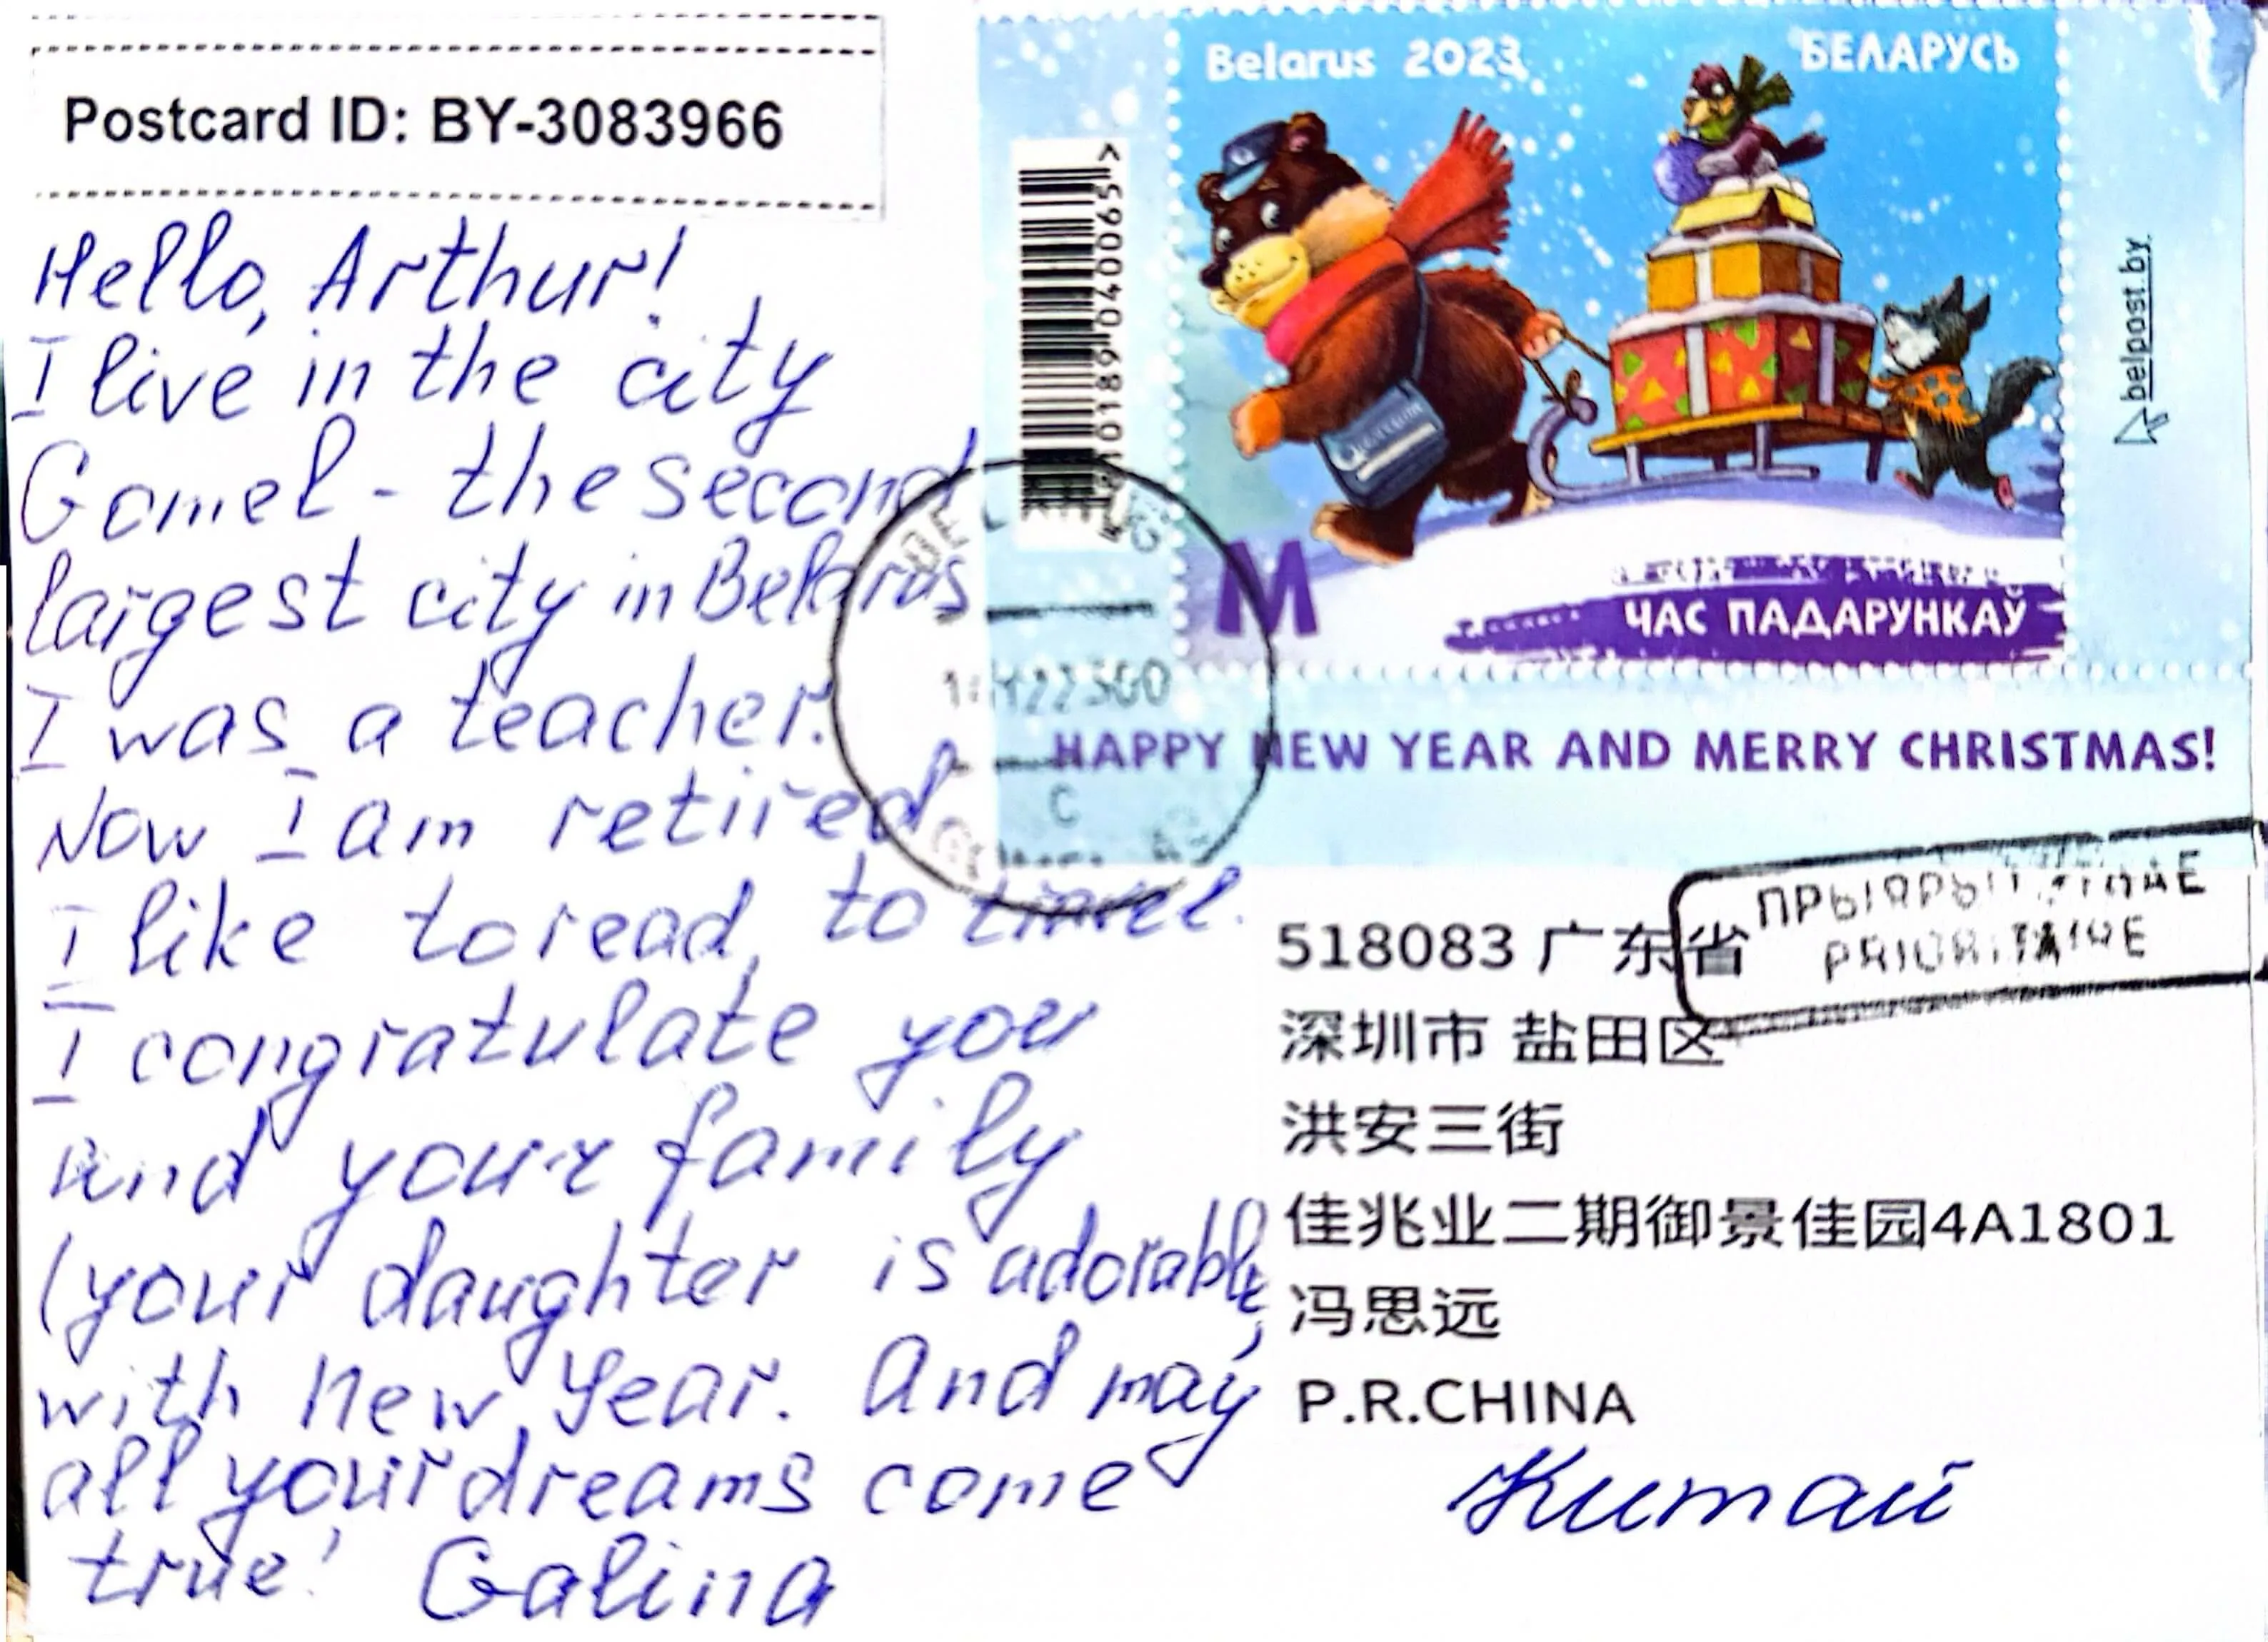 Postcard ID: BY-3083966
Hello, Arthur!
I live in the city
Gomel - the second
largest city in Belarus
I was a teacher.
Now I am retired
I like to read, to travel.
I congratulate you
and your family
(your daughter is adorable,
with New Year. And may
all your dreams come
true! Galina
Belarus 2023
БЕЛАРУСЬ
belpost.by
M
ЧАС ПАДАРУНКАЎ
HAPPY NEW YEAR AND MERRY CHRISTMAS!
C
PRIORITAIRE
518083 广东省
深圳市 盐田区
洪安三街
佳兆业二期御景佳园4A1801
冯思远
P.R.CHINA
Китай